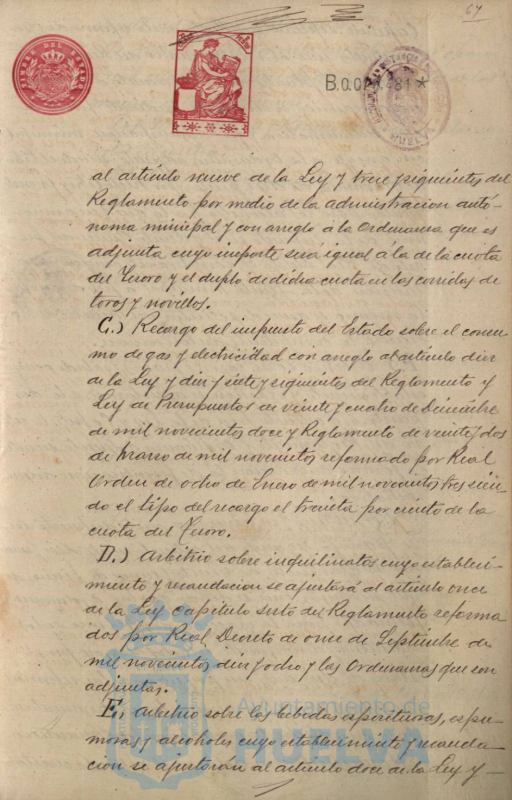 67
TIMBRE DEL ESTADO
B.0.0
81*
al artículo nueve de la Ley y trece y siguientes del
Reglamento por medio de la administracion autó-
noma municipal y con arreglo á la Ordenanza que es
adjunta cuyo importe será igual á la de la cuota
del Tesoro y el duplo de dicha cuota en las corridas de
toros y novillos.
C.) Recargo del impuesto del Estado sobre el consu-
mo de gas y electricidad con arreglo al artículo diez
de la Ley y diez y siete y siguientes del Reglamento y
Ley de Presupuestos de veinte y cuatro de Diciembre
de mil novecientos doce y Reglamento de veinte y dos
de Marzo de mil novecientos reformado por Real
Orden de ocho de Enero de mil novecientos tres sien-
do el tipo del recargo el treinta por ciento de la
cuota del Tesoro.
D.) Arbitrio sobre inquilinatos cuyo estableci-
miento y recaudacion se ajustará al artículo once
de la Ley capítulo sexto del Reglamento reforma
dos por Real Decreto de once de Septiembre de
mil novecientos diez y ocho y las Ordenanzas que son
adjuntas.
E) Arbitrio sobre las bebidas espirituosas, espu-
mosas y alcoholes cuyo establecimiento y recauda-
cion se ajustarán al artículo doce de la Ley y
Ayuntamiento de
HUELVA